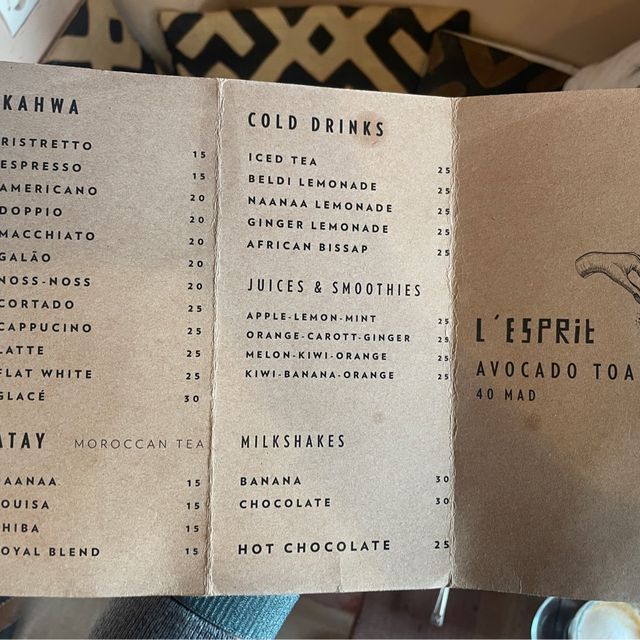 KAHWA
RISTRETTO 15
ESPRESSO 15
AMERICANO 20
DOPPIO 20
MACCHIATO 20
GALÃO 20
NOSS-NOSS 20
CORTADO 25
CAPPUCINO 25
LATTE 25
FLAT WHITE 25
GLACÉ 30
ATAY MOROCCAN TEA
AANAA 15
OUISA 15
HIBA 15
OYAL BLEND 15
COLD DRINKS
ICED TEA 25
BELDI LEMONADE 25
NAANAA LEMONADE 25
GINGER LEMONADE 25
AFRICAN BISSAP 25
JUICES & SMOOTHIES
APPLE-LEMON-MINT 25
ORANGE-CAROTT-GINGER 25
MELON-KIWI-ORANGE 25
KIWI-BANANA-ORANGE 25
MILKSHAKES
BANANA 30
CHOCOLATE 30
HOT CHOCOLATE 25
L'ESPRIT
AVOCADO TOA
40 MAD